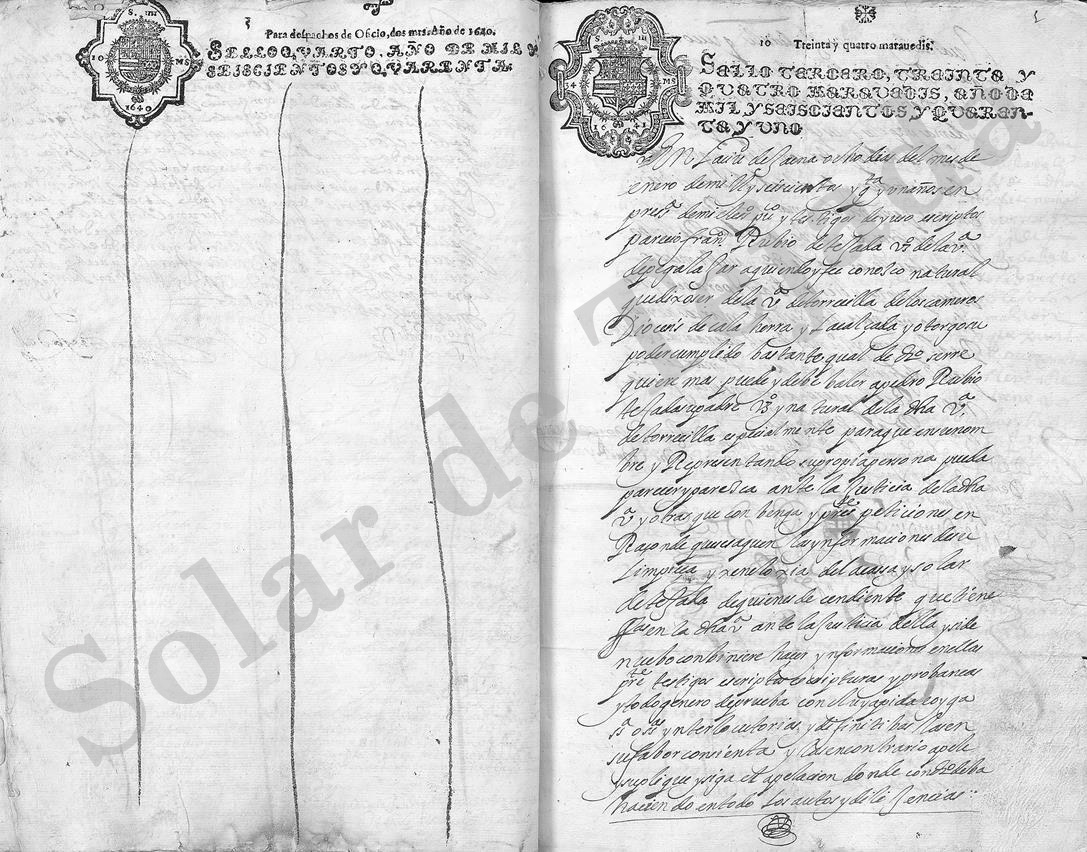 Para despachos de Oficio, dos mrs. Año de 1640.
SELLO QVARTO, AÑO DE MIL Y
SEISCIENTOS Y QVARENTA.
S. IIII
10 MS
1640
1
10 Treinta y quatro marauedis.
SELLO TERCERO, TREINTA Y
QVATRO MARAVEDIS, AÑO DE
MIL Y SEISCIENTOS, Y QVAREN-
TA Y VNO
1641
En la de Baena ocho dias del mes de
enero de mill y seiscientos y q.ta y un años en
pres.a de mi el es.no pu.co y testigos de yuso escriptos
parecio fran.co Rubio de texada v.o de la v.a
de pegalaJar a quien doy fee conosco natural
que dixo ser de la v.a de torrecilla de los cameros
Diocesis de calahorra y La calçada y otorgo su
poder cumplido bastante qual de dr.o se rre
quiere mas puede y debe baler a pedro Rubio
texada su padre v.o y natural de la dha v.a
de torrecilla especialmente para que en su nom
bre y Representando su propia persona pueda
parecer y paresca ante la Justicia de la dha
v.a y otras que conbenga y pres.te peticiones en
Raçon de que se saquen las ynformaciones de su
Limpieça y xeneloxia del de la casa y solar
de texada de quien es decendiente que tiene
en la dha v.a ante la Justicia della y si de
nuebo conbiniere hacer ynformaciones en ellas
pr.te testigos escriptos escripturas y probancas
y todo genero de prueba concluya pida oyga
ynterlocutorias, y difinitibas las en
su fabor consienta, y Las en contrario apele
y suplique y siga el apelacion donde con dr.o deba
haciendo en todo Los autos y diliJencias
Solar de Tejada